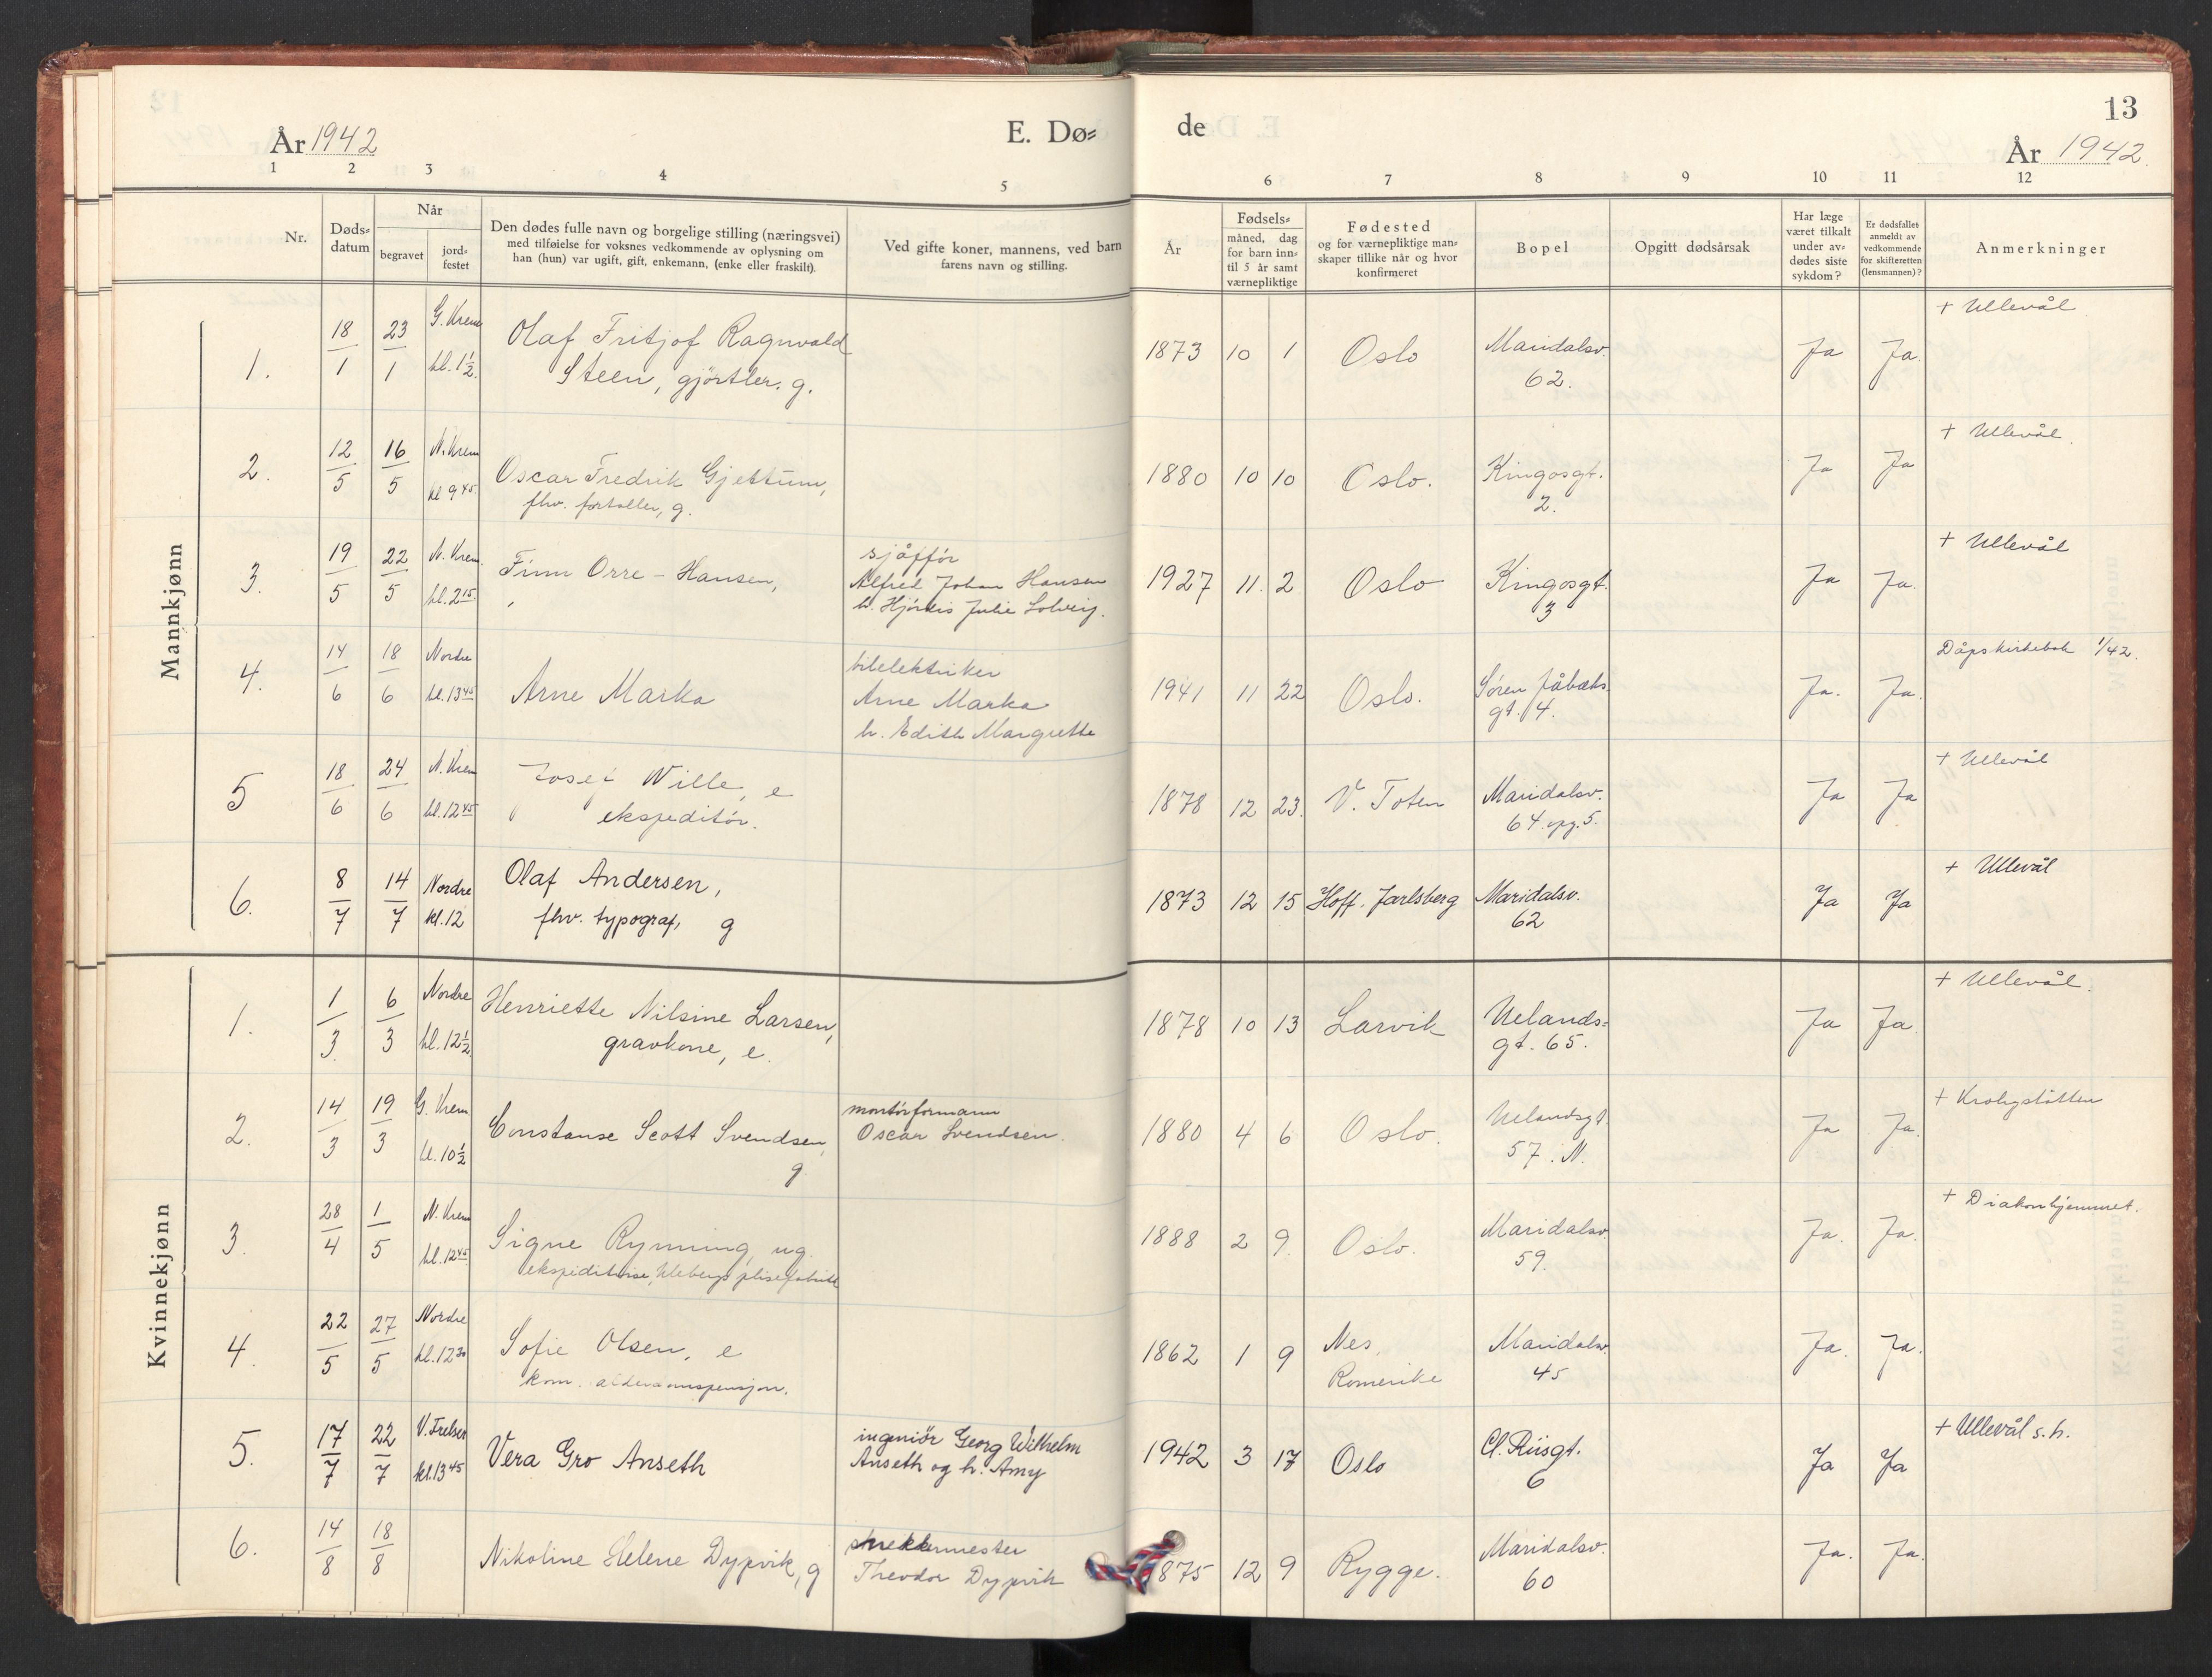 13
År 1942
E. Dø=
de
År 1942.
1 2 3 4 5 6 7 8 9 10 11 12
Nr.
Døds=
datum
Når
begravet
jord=
festet
Den dødes fulle navn og borgelige stilling (næringsvei)
med tilføielse for voksnes vedkommende av oplysning om
han (hun) var ugift, gift, enkemann, (enke eller fraskilt).
Ved gifte koner, mannens, ved barn
farens navn og stilling.
År
Fødsels=
måned, dag
for barn inn=
til 5 år samt
værnepliktige
Fødested
og for værnepliktige man=
skaper tillike når og hvor
konfirmeret
Bopel
Opgitt dødsårsak
Har læge
været tilkalt
under av=
dødes siste
sykdom?
Er dødsfallet
anmeldt av
vedkommende
for skifteretten
(lensmannen)?
Anmerkninger
Mannkjønn
1. 18/1 23/1 G. Krem kl. 1½.
Olaf Fritjof Ragnvald
Steen, gjørtler. g.
1873 10 1 Oslo
Maridalsv.
62.
Ja Ja.
+ Ullevål
2. 12/5 16/5 N. Krem kl 9 45
Oscar Fredrik Gjettum,
fhv. fortoller, g.
1880 10 10 Oslo.
Kingosgt.
2.
Ja Ja
+ Ullevål.
3. 19/5 22/5 N. Krem. kl. 2 15
Finn Orre - Hansen,
sjåfför
Alfred Johan Hansen
h. Hjördis Julie Solveig.
1927 11 2 Oslo
Kingosgt.
3
Ja Ja.
+ Ullevål
4. 14/6 18/6 Nordre kl. 13 45
Arne Marka
bilelektriker
Arne Marka
h. Edith Margrette
1941 11 22 Oslo.
Søren Jåbæks
gt. 4.
Ja. Ja.
Dåpskirkebok 1/42.
5 18/6 24/6 N. Krem kl. 12 45
Josef Wille, e
ekspeditör.
1878 12 23. V. Toten
Maridalsv.
64. opg. 5.
Ja Ja
+ Ullevål
6. 8/7 14/7 Nordre kl. 12
Olaf Andersen,
fhv. typograf, g
1873 12 15 Hoff. Jarlsberg
Maridalsv.
62
Ja Ja
+ Ullevål
Kvinnekjønn
1. 1/3. 6/3 Nordre kl. 12½
Henriette Nilsine Larsen,
gravkone, e.
1878 10 13 Larvik
Uelands=
gt. 65.
Ja Ja.
+ Ullevål.
2. 14/3 19/3 G. Krem kl. 10½
Constanse Scott Svendsen,
g.
montörformann
Oscar Svendsen.
1880 4 6 Oslo.
Uelandsgt
57. N.
Ja Ja.
+ Krohgstötten
3. 28/4 1/5 N. Krem kl. 12 45
Signe Rynning, ug.
ekspeditrise, Klebergs plisefabrikk
1888 2 9. Oslo.
Maridalsv
59.
Ja. Ja.
+ Diakonhjemmet.
4. 22/5 27/5 Nordre kl. 12 30
Sofie Olsen, e
kom. alderdomspensjon.
1862 1 9
Nes,
Romerike
Maridalsv.
45
Ja. Ja.
5. 17/7 22/7 V. Frelser kl. 13 45
Vera Gro Anseth
ingeniör Georg Wilhelm
Anseth og h. Amy
1942 3 17 Oslo
Cl. Riisgt.
6
Ja Ja
+ Ullevål s.h.
6. 14/8 18/8
Nikoline Helene Dypvik, g
snekkermester
Theodor Dypvik
1875 12 9 Rygge.
Maridalsv.
60
Ja. Ja.